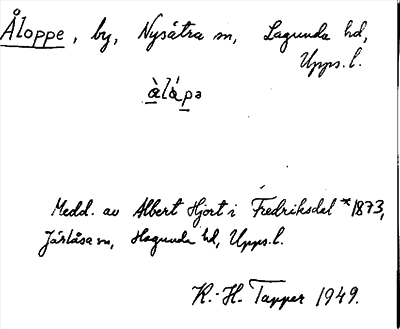 Åloppe, by, Nysätra sn, Lagunda hd,
Upps. l.
àlápə
Medd. av Albert Hjort i Fredriksdal *1873,
Järlåsa sn, Hagunda hd, Upps. l.
K.-H. Tapper 1949.